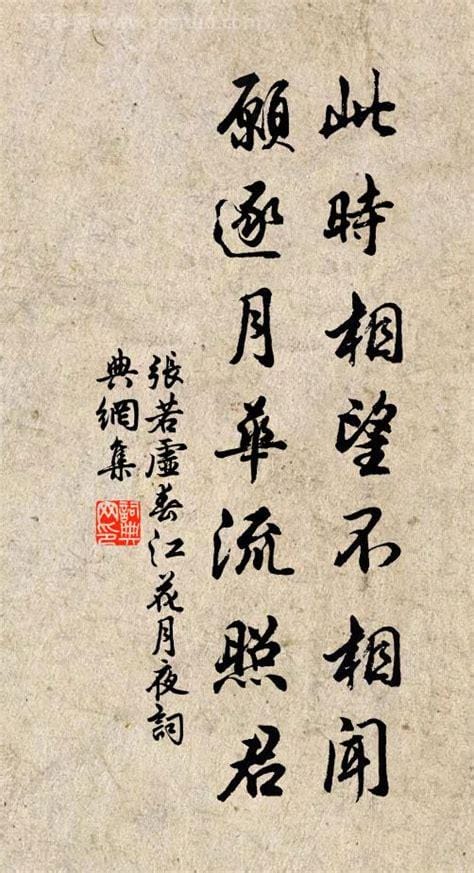 此時相望不相聞
願逐月華流照君
張若虛春江花月夜詞
典網集